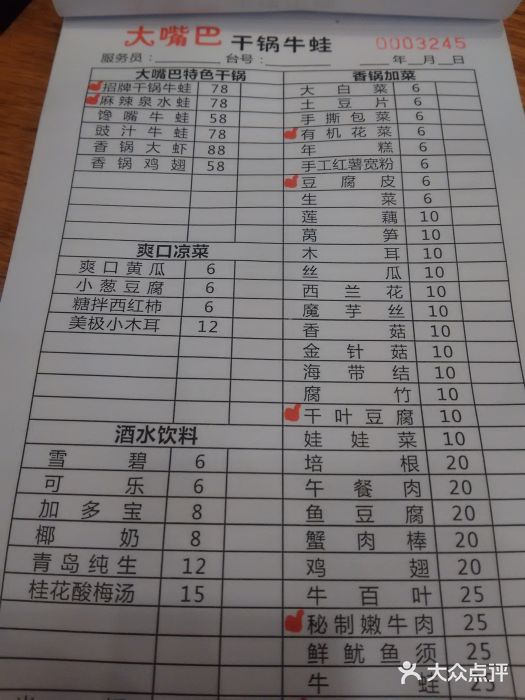 大嘴巴 干锅牛蛙 0003245
服务员： 台号： 年 月 日
大嘴巴特色干锅
招牌干锅牛蛙 78
麻辣泉水蛙 78
馋嘴牛蛙 58
豉汁牛蛙 78
香锅大虾 88
香锅鸡翅 58
爽口凉菜
爽口黄瓜 6
小葱豆腐 6
糖拌西红柿 6
美极小木耳 12
酒水饮料
雪碧 6
可乐 6
加多宝 8
椰奶 8
青岛纯生 12
桂花酸梅汤 15
香锅加菜
大白菜 6
土豆片 6
手撕包菜 6
有机花菜 6
年糕 6
手工红薯宽粉 6
豆腐皮 6
生菜 6
莲藕 10
莴笋 10
木耳 10
丝瓜 10
西兰花 10
魔芋丝 10
香菇 10
金针菇 10
海带结 10
腐竹 10
千叶豆腐 10
娃娃菜 10
培根 20
午餐肉 20
鱼豆腐 20
蟹肉棒 20
鸡翅 20
牛百叶 25
秘制嫩牛肉 25
鲜鱿鱼须 25
牛蛙 25
大众点评